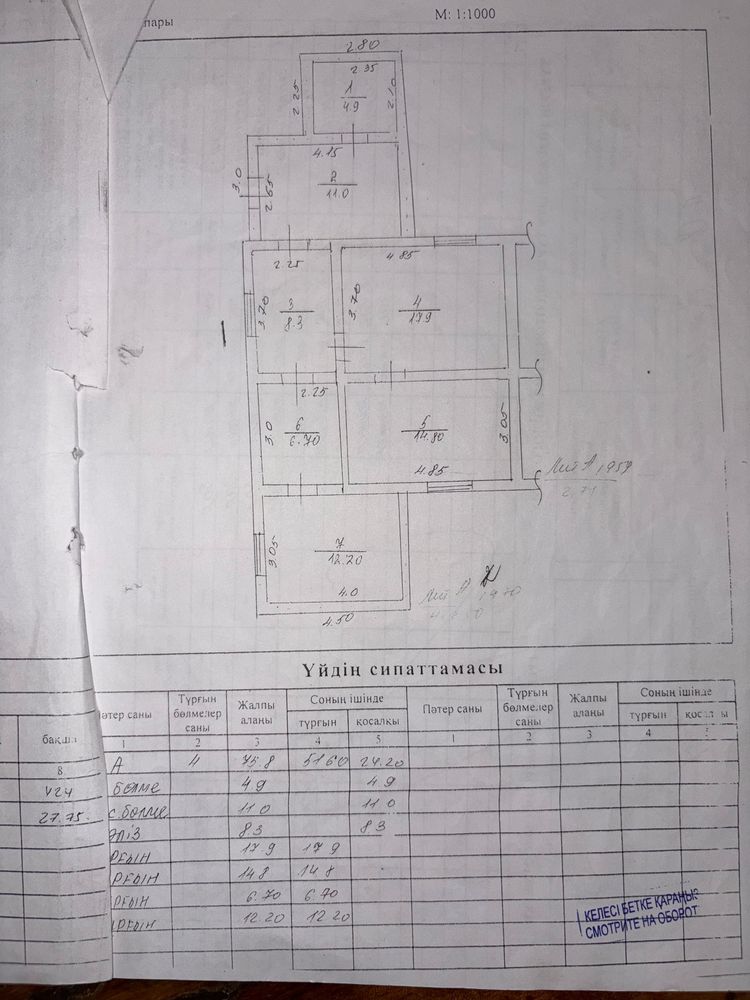 пары
М: 1:1000
2.80
2.35
2.25
1
4.9
2.10
4.15
3.0
2.65
2
11.0
2.25
4.85
3.70
3
8.3
3.70
4
17.9
2.25
3.0
6
6.70
5
14.80
3.05
4.85
Лит А 1959
2.71
3.05
7
12.20
4.0
4.50
Лит А
1970
Үйдің сипаттамасы
пәтер саны
Тұрғын бөлмелер саны
Жалпы алаңы
Соның ішінде
тұрғын
қосалқы
Пәтер саны
Тұрғын бөлмелер саны
Жалпы алаңы
Соның ішінде
тұрғын
қосалқы
1 2 3 4 5 1 2 3 4 5
8
27.75
А 4 75.8 51.60 24.20
бөлме 4.9 4.9
с.бөлме 11.0 11.0
8.3 8.3
17.9 17.9
14.8 14.8
6.70 6.70
12.20 12.20
КЕЛЕСІ БЕТКЕ ҚАРАҢЫЗ
СМОТРИТЕ НА ОБОРОТ